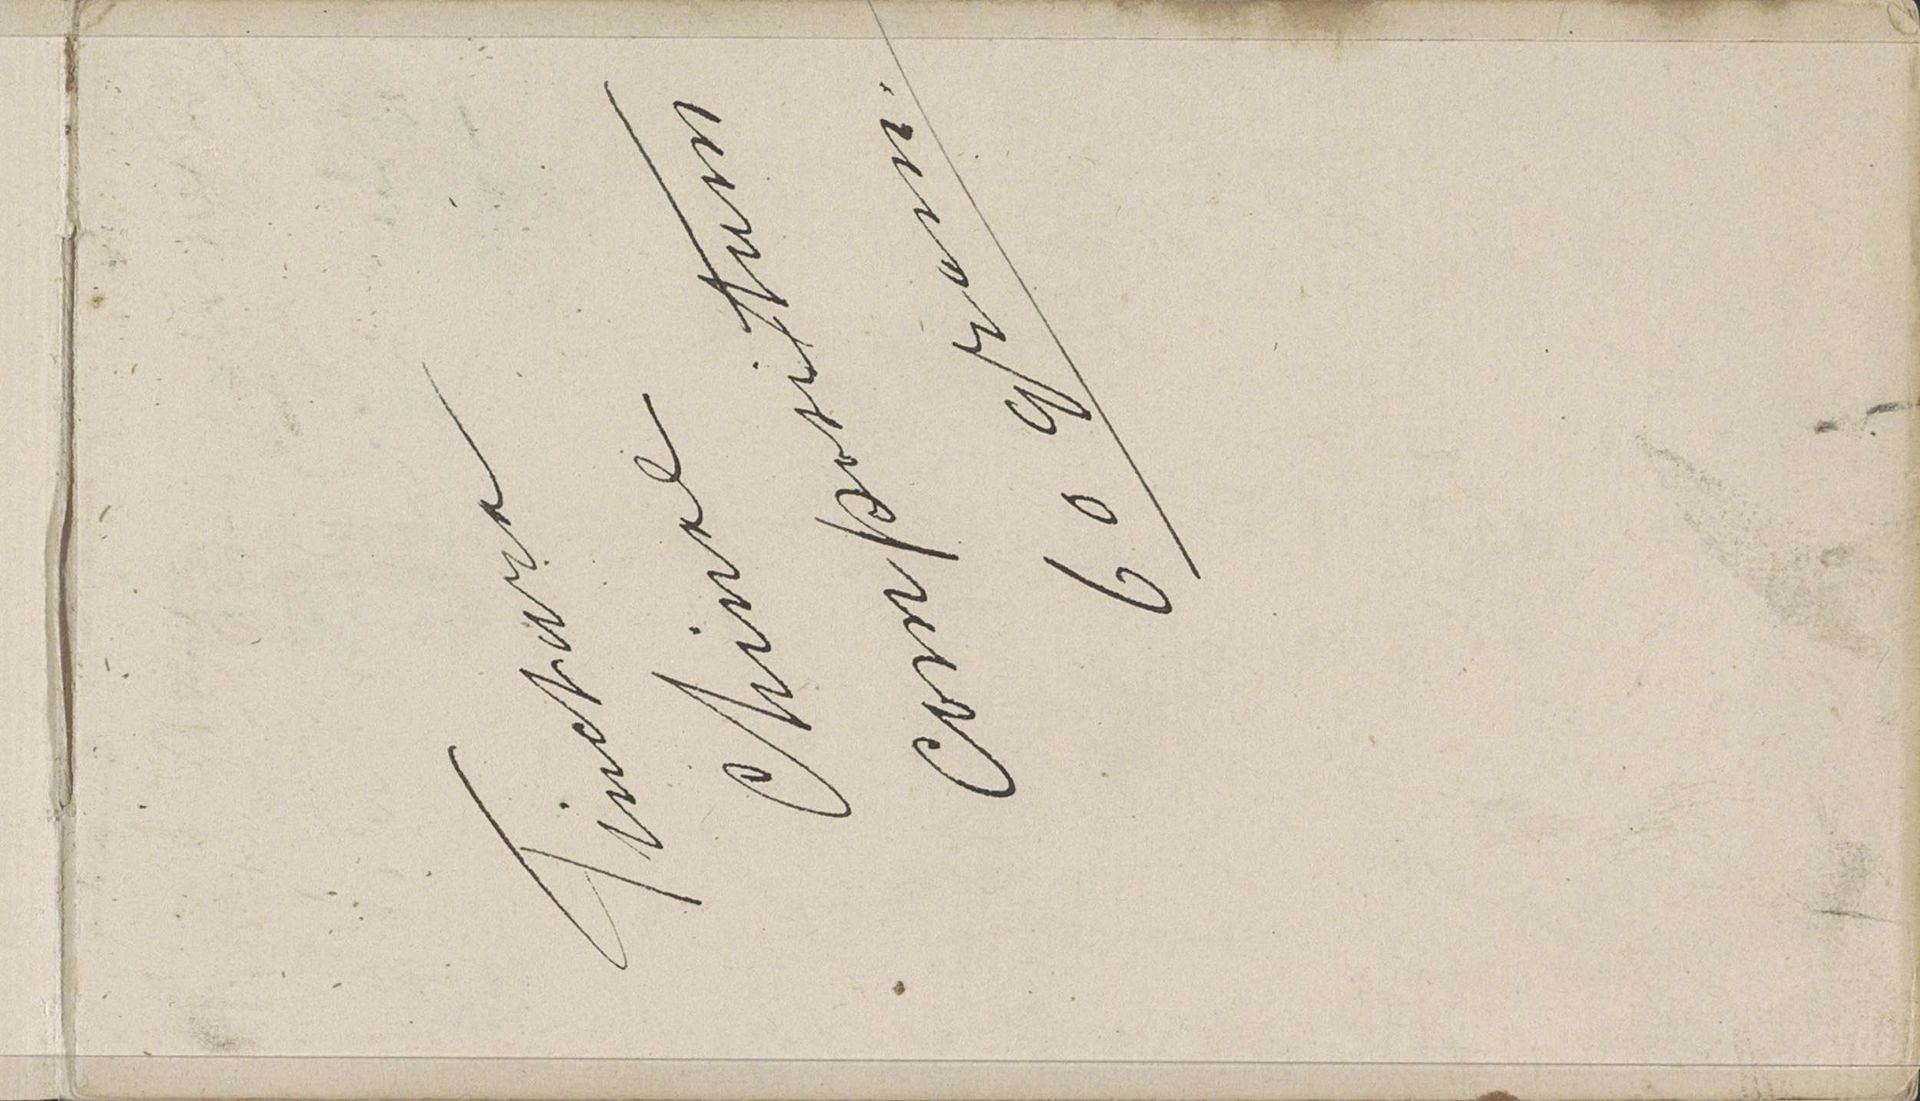 Tinctura
Chinae
Compositum
60 Gram.